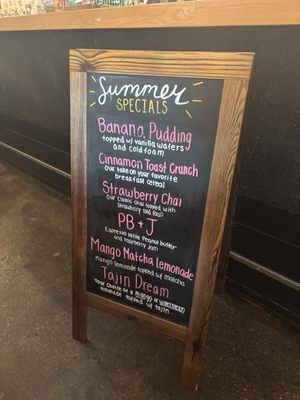 Summer
SPECIALS
Banana Pudding
topped w/ vanilla wafers
and cold foam
Cinnamon Toast Crunch
Our take on your favorite
breakfast cereal
Strawberry Chai
Our classic chai topped with
Strawberry cold foam
PB+J
Espresso latte Peanut butter
and raspberry jam
Mango Matcha Lemonade
Mango lemonade topped w/ matcha
Tajin Dream
Your choice of a mango or
lemonade topped w/ tajin.